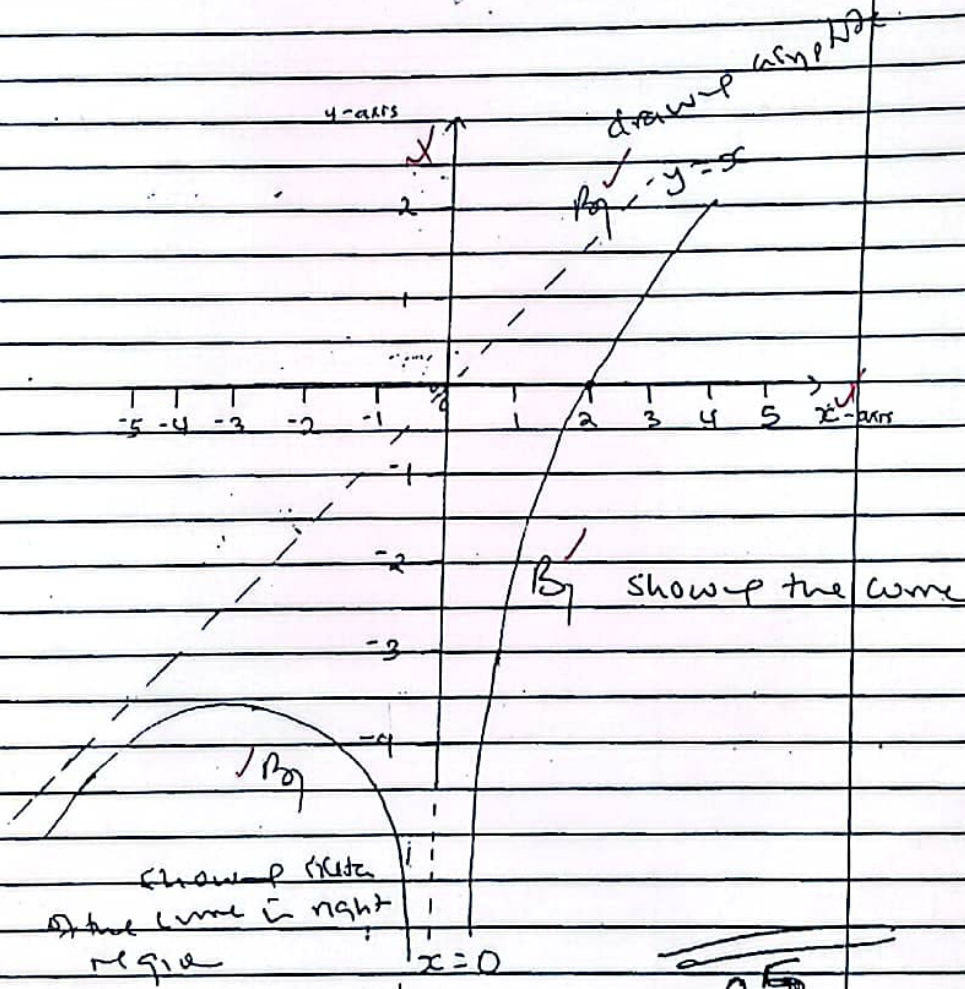 drawing asymptote
y-axis
B1 y = x
2
1
-5 -4 -3 -2 -1 0 1 2 3 4 5 x-axis
-1
-2
B1 showing the curve
-3
-4
B1
showing sketch
of the curve in right
region
x = 0